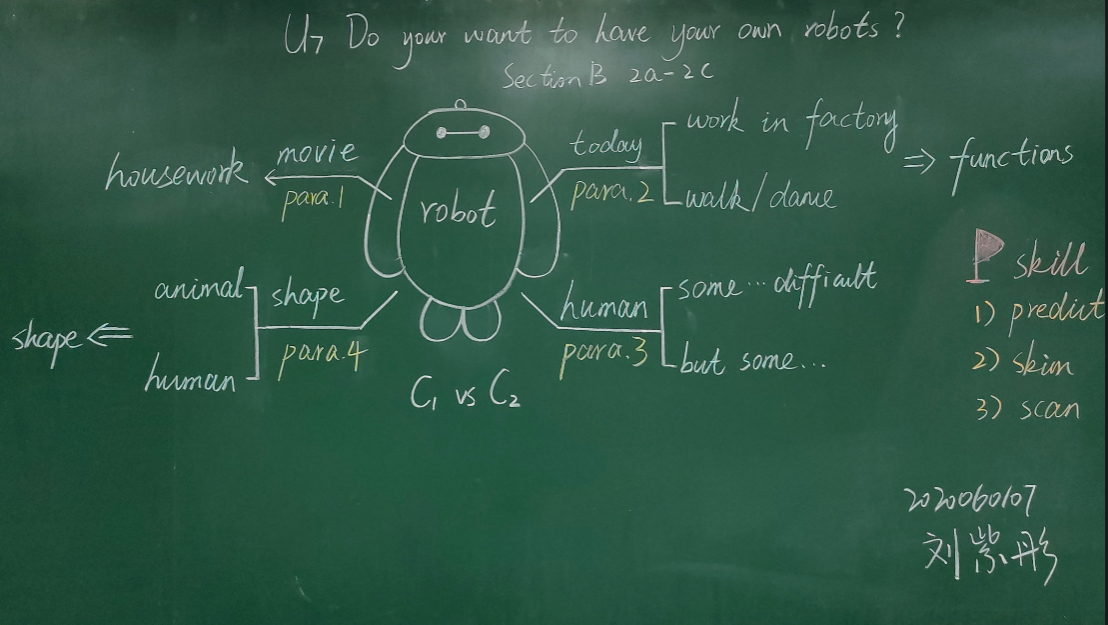 U7 Do your want to have your own robots?
Section B 2a-2c
housework
movie
para.1
robot
today
para.2
work in factory
walk/dance
⇒ functions
animal
human
shape
para.4
shape ⇐
human
para.3
some... difficult
but some...
C1 vs C2
skill
1) predict
2) skim
3) scan
2020060107
刘紫彤